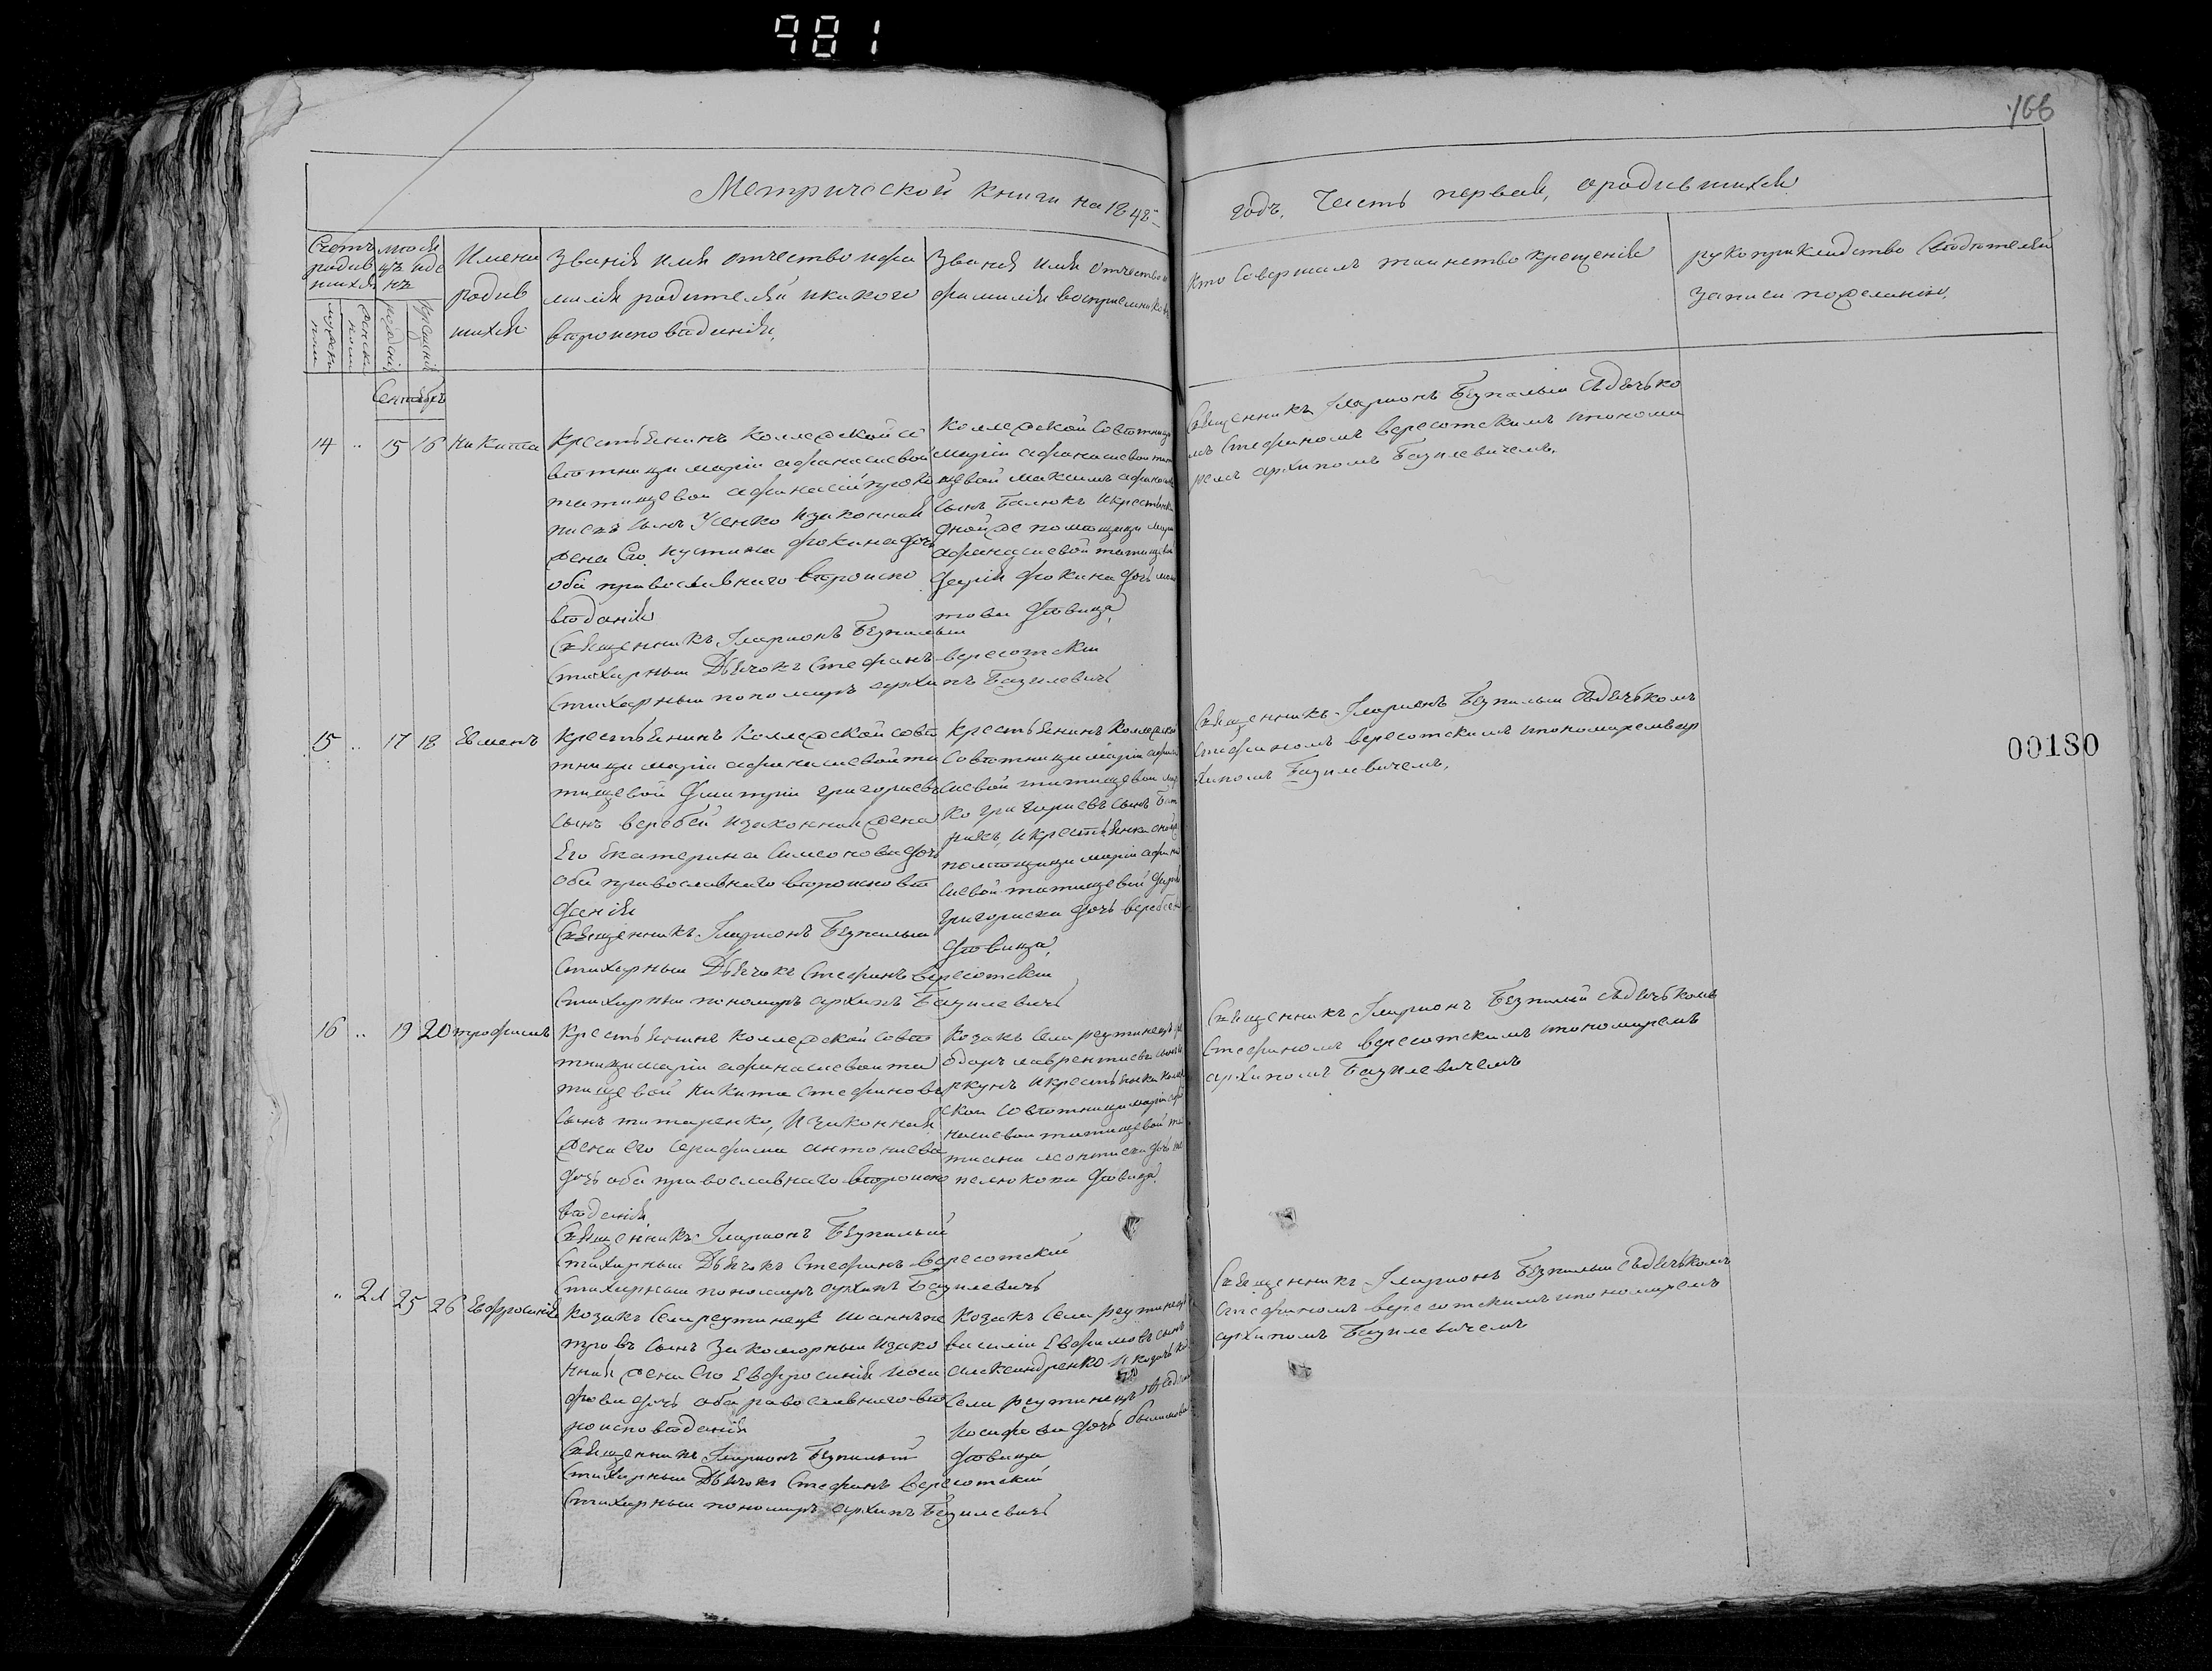 981
166
Метрической книги на 1848-
годъ. Часть первая, ородившихся
Счетъ родив шихся
мҍся цъ иде нь
Имена родив шихся
Званія имя отчество ифа
милія родителей икакого
вҍроисповҍданія,
Званія имя отчество и
фамилія воспріемниковъ
Кто Совершалъ таинство крещенія
рукоприкладство Свҍдҍтелей
записи пожеланію,
мужеска пола
женска пола
рожденія
крещенія
Сентябрь
14 .. 15 16 Никита
Крестьянинъ Коллежской со
вҍтницы маріи афанасиевой
татищевои афанасій проко
пиевъ сынъ Усенко изаконная
жена Его Иустина фокина дочь
оба православнаго вҍроиспо
вҍданія
Священникъ Іларионъ Безпалыи
Стихарныи Дьячокъ Стефанъ вересотски
Стихарныи пономарь архипъ Базилевичь
Коллежской Совҍтницы
маріи афанасиевои тати
щевой максимъ афанасиевъ
сынъ Балюкъ икрестьянка
оной же помҍщицы маріи
афанасиевой татищевой
фокина дочь
дҍвица,
Священникъ Іларионъ Безпалыи сдьячко
мъ Стефаномъ вересотскимъ ипонома
ремъ архипомъ Базилевичемъ.
15 .. 17 18 Евменъ
Крестьянинъ Коллежской совҍ
тницы маріи афанасиевой та
тищевой Димитрій григориевъ
сынъ веребей изаконная жена
Его Екатерина Симеонова дочь
оба православнаго вҍроисповҍ
данія
Священникъ Іларионъ Безпалыи
Стихарныи Дьячокъ Стефанъ вересотскіи
Стихарныи пономарь архипъ Базилевичь
Крестьянинъ Коллежской
Совҍтницы маріи афана
сиевой татищевой
григориевъ сынъ
икрестьянка оной
помҍщицы маріи афана
сиевой татищевой
григориева дочь
дҍвица,
Священникъ Іларионъ Безпалыи сдьячкомъ
стефаномъ вересотскимъ ипономаремъ ар
хипомъ Базилевичемъ,
16 .. 19 20 трофимъ
Крестьянинъ Коллежской совҍ
тницы маріи афанасиевои та
тищевой Никита Стефановъ
сынъ титаренко, Изаконная
жена его Серафима антониева
дочь оба православнаго вҍроиспо
вҍденія,
Священникъ Іларионъ Безпалый
Стихарныи Дьячокъ Стефанъ вересотскіи
Стихарныи пономарь архипъ Базилевичь
Козакъ Села реутинецъ
лаврентиевъ сынъ
икрестьянка Коллеж
скои Совҍтницы маріи афа
насиевои татищевой та
тиана леонтиева дочь
дҍвица
Священникъ Іларионъ Безпалый сдьячкомъ
Стефаномъ вересотскимъ ипономаремъ
архипомъ Базилевичемъ
.. 21 25 26 Евфросинія
Козакъ Села реутинецъ Иоаннъ пе
тровъ сынъ Закоморныи изако
нная жена Его Евфросинія Иоси
фова дочь оба равославнаго вҍ
роисповҍданія
Священникъ Іларионъ Безпалый
Стихарныи Дьячокъ Стефанъ вересотскій
Стихарныи пономарь архипъ Базилевичь
Козакъ Села реутинецъ
василій Евфимовъ сынъ
александренко И козачка
Села реутинецъ
Иосифова дочь
дҍвица
Священникъ Іларионъ Безпалыи сдьячкомъ
Стефаномъ вересотскимъ ипономаремъ
архипомъ Базилевичемъ
00180